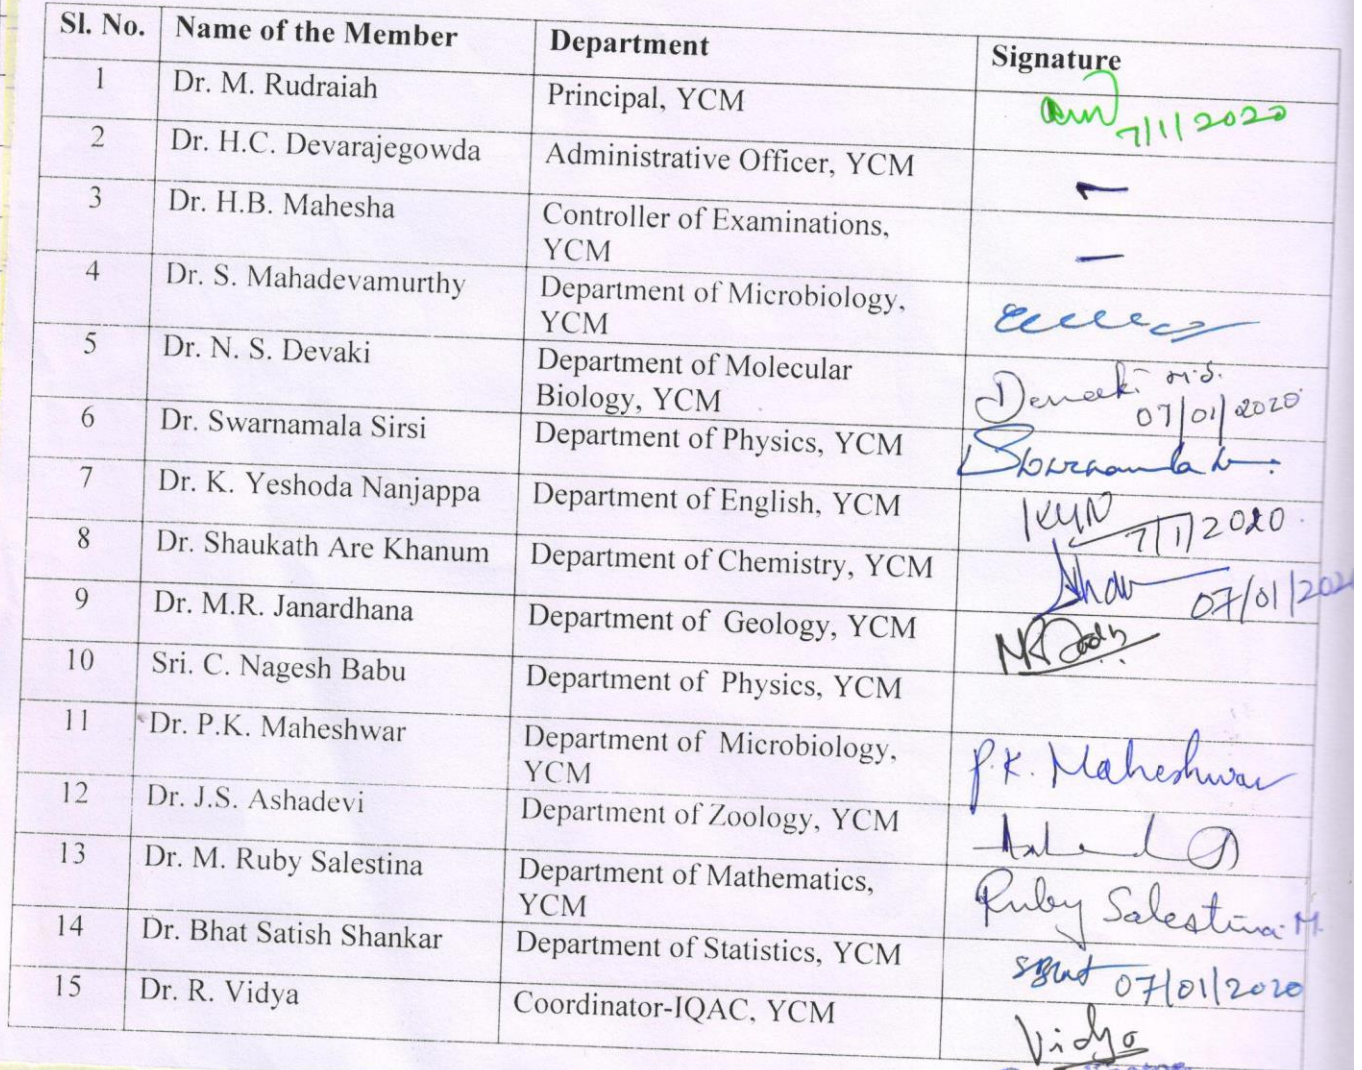 Sl. No. Name of the Member Department Signature
1 Dr. M. Rudraiah Principal, YCM 7/1/2020
2 Dr. H.C. Devarajegowda Administrative Officer, YCM —
3 Dr. H.B. Mahesha Controller of Examinations,
YCM —
4 Dr. S. Mahadevamurthy Department of Microbiology,
YCM
5 Dr. N. S. Devaki Department of Molecular Devaki N.S.
Biology, YCM 07/01/2020
6 Dr. Swarnamala Sirsi Department of Physics, YCM
7 Dr. K. Yeshoda Nanjappa Department of English, YCM KYN 7/1/2020
8 Dr. Shaukath Are Khanum Department of Chemistry, YCM 07/01/202
9 Dr. M.R. Janardhana Department of Geology, YCM
10 Sri. C. Nagesh Babu Department of Physics, YCM
11 Dr. P.K. Maheshwar Department of Microbiology, P.K. Maheshwar
YCM
12 Dr. J.S. Ashadevi Department of Zoology, YCM
13 Dr. M. Ruby Salestina Department of Mathematics, Ruby Salestina.M.
YCM
14 Dr. Bhat Satish Shankar Department of Statistics, YCM 07/01/2020
15 Dr. R. Vidya Coordinator-IQAC, YCM Vidya